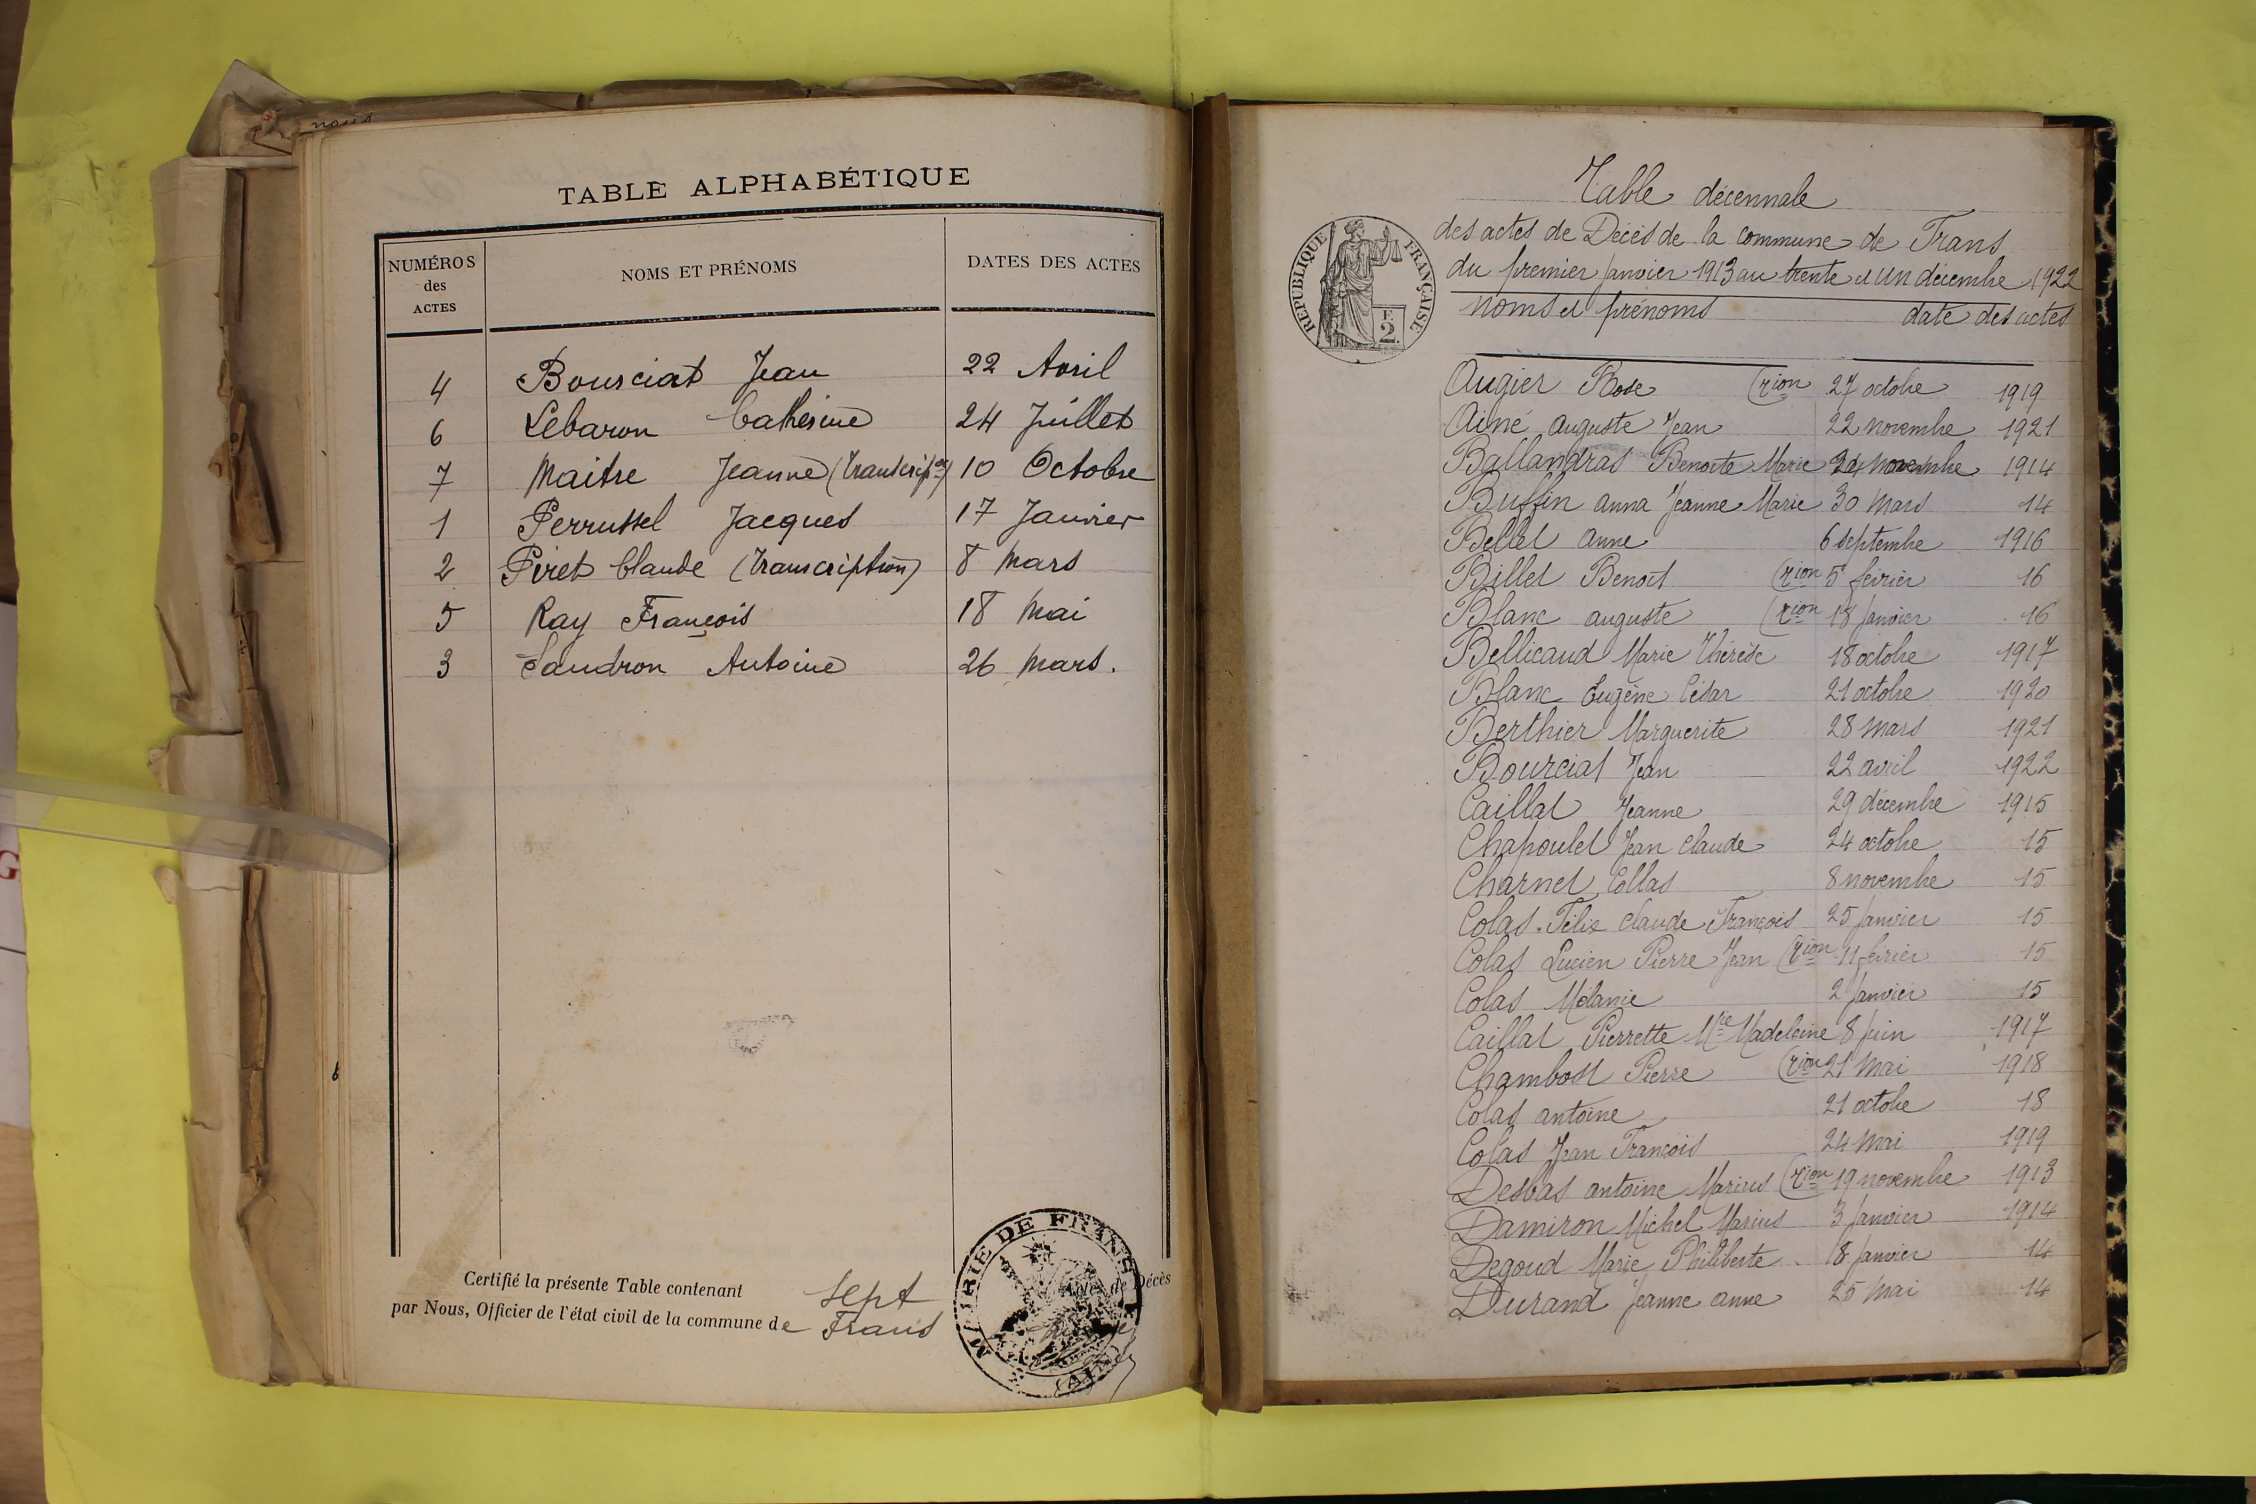 TABLE ALPHABÉTIQUE
NUMÉROS
des
ACTES
NOMS ET PRÉNOMS
DATES DES ACTES
4 Boursiat Jean 22 Avril
6 Lebaron Catherine 24 Juillet
7 Maitre Jeanne (transcripon) 10 Octobre
1 Perrussel Jacques 17 Janvier
2 Piret Claude (transcription) 8 Mars
5 Ray François 18 Mai
3 Sandron Antoine 26 Mars.
Certifié la présente Table contenant sept Actes de Décès
par Nous, Officier de l'état civil de la commune de Frans
MAIRIE DE FRANS
(AIN)
Table décennale
des actes de Décès de la commune de Frans
du premier Janvier 1913 au trente et un décembre 1922
REPUBLIQUE FRANÇAISE
2F.
noms et prénoms date des actes
Augier Rose (rion 27 octobre 1919
Aimé Auguste Jean 22 novembre 1921
Ballandras Benoite Marie 24 novembre 1914
Buffin Anna Jeanne Marie 30 Mars 14
Bellet Anne 6 septembre 1916
Billet Benoit (rion 5 février 16
Blanc Auguste (rion 18 Janvier 16
Bellicaud Marie Thérèse 18 octobre 1917
Blanc Eugène César 21 octobre 1920
Berthier Marguerite 28 Mars 1921
Bourciat Jean 22 avril 1922
Caillat Jeanne 29 décembre 1915
Chapoulet Jean Claude 24 octobre 15
Charnet Collas 8 novembre 15
Colas Félix Claude François 25 Janvier 15
Colas Lucien Pierre Jean (rion 11 février 15
Colas Mélanie 2 Janvier 15
Caillat Pierrette Mie Madeleine 8 Juin 1917
Chambost Pierre (rion 21 Mai 1918
Colas Antoine 21 octobre 18
Colas Jean François 24 Mai 1919
Desbas Antoine Marius (rion 19 novembre 1913
Damiron Michel Marius 3 Janvier 1914
Degoud Marie Philiberte 18 Janvier 14
Durand Jeanne Anne 25 Mai 14